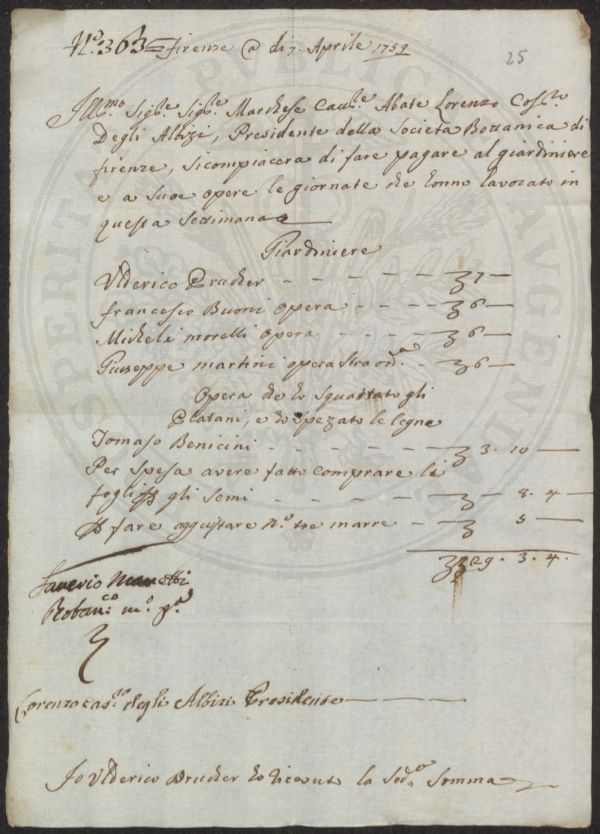 N.º 363 = Firenze @ di 7. Aprile 1759
25
Ill.mo Sig.re Sig.re Marchese Cav.re Abate Lorenzo Cos.zo
Degli Albizi, Presidente della Societa Bottanica di
firenze, si compiacera di fare pagare al giardiniere
e a sue opere le giornate che honno lavorato in
questa Settimana
Giardiniere
Ulderico Prucker - - - - - - 7 —
francesco Buoni opera - - - - 6 —
Michele morelli opera - - - - 6 —
Giuseppe martini opera straord.a - - 6 —
Opera che ho squartato gli
Platani, e ho spezato le legne
Tomaso Benicini - - - - - - 3. 10 —
Per spesa avere fatto comprare le
fogli p gli semi - - - - - - — 8. 4 —
p fare aggustare N.º tre marre - — 5 —
29. 3. 4.
Saverio Manetti
m.o p.a
Lorenzo Cas.ro degli Albizi Presidente
Io Ulderico Prucker ho ricevuto la Sod.a Somma
PVBLICAE
AVGENDAE